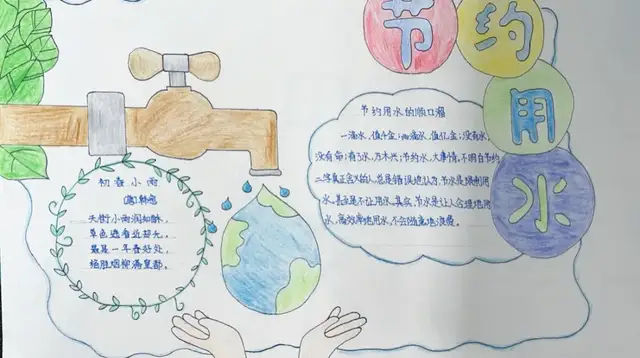 节约用水
节约用水的顺口溜
一滴水,值千金;两滴水,值亿金;没有水,
没有命;有了水,万木兴;节约水,大事情,不明白节约
二字真正含义的人,总是错误地认为,节水是限制用
水,甚至是不让用水。其实,节水是让人合理地用
水,高效率地用水,不会随意地浪费。
初春小雨
(唐)韩愈
天街小雨润如酥,
草色遥看近却无。
最是一年春好处,
绝胜烟柳满皇都。